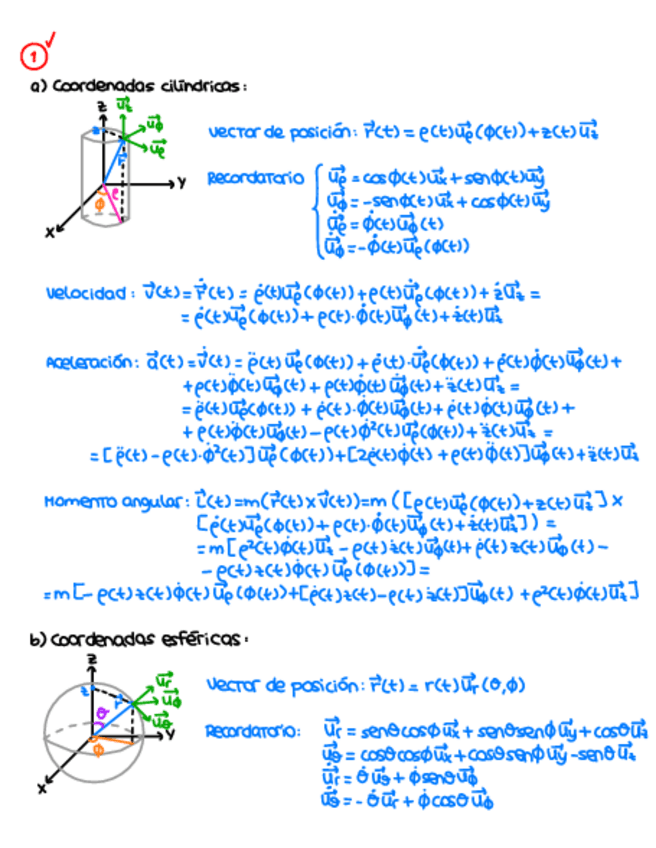 1
a) Coordenadas cilíndricas:
z
u⃗z
u⃗ϕ
u⃗ρ
z
r⃗
y
ρ
ϕ
x
Vector de posición: r⃗(t) = ρ(t)u⃗ρ(ϕ(t)) + z(t)u⃗z
Recordatorio
u⃗ρ = cosϕ(t)u⃗x + senϕ(t)u⃗y
u⃗ϕ = -senϕ(t)u⃗x + cosϕ(t)u⃗y
u̇⃗ρ = ϕ̇(t)u⃗ϕ(t)
u̇⃗ϕ = -ϕ̇(t)u⃗ρ(ϕ(t))
Velocidad: v⃗(t) = ṙ⃗(t) = ρ̇(t)u⃗ρ(ϕ(t)) + ρ(t)u̇⃗ρ(ϕ(t)) + żu⃗z =
= ρ̇(t)u⃗ρ(ϕ(t)) + ρ(t)·ϕ̇(t)u⃗ϕ(t) + ż(t)u⃗z
Aceleración: a⃗(t) = v̇⃗(t) = ρ̈(t)u⃗ρ(ϕ(t)) + ρ̇(t)·u̇⃗ρ(ϕ(t)) + ρ̇(t)ϕ̇(t)u⃗ϕ(t) +
+ ρ(t)ϕ̈(t)u⃗ϕ(t) + ρ(t)ϕ̇(t)u̇⃗ϕ(t) + z̈(t)u⃗z =
= ρ̈(t)u⃗ρ(ϕ(t)) + ρ̇(t)·ϕ̇(t)u⃗ϕ(t) + ρ̇(t)ϕ̇(t)u⃗ϕ(t) +
+ ρ(t)ϕ̈(t)u⃗ϕ(t) - ρ(t)ϕ̇²(t)u⃗ρ(ϕ(t)) + z̈(t)u⃗z =
= [ρ̈(t) - ρ(t)·ϕ̇²(t)]u⃗ρ(ϕ(t)) + [2ρ̇(t)ϕ̇(t) + ρ(t)ϕ̈(t)]u⃗ϕ(t) + z̈(t)u⃗z
Momento angular: L⃗(t) = m(r⃗(t)×v⃗(t)) = m([ρ(t)u⃗ρ(ϕ(t)) + z(t)u⃗z]×
[ρ̇(t)u⃗ρ(ϕ(t)) + ρ(t)·ϕ̇(t)u⃗ϕ(t) + ż(t)u⃗z]) =
= m[ρ²(t)ϕ̇(t)u⃗z - ρ(t)ż(t)u⃗ϕ(t) + ρ̇(t)z(t)u⃗ϕ(t) -
- ρ(t)z(t)ϕ̇(t)u⃗ρ(ϕ(t))] =
= m[-ρ(t)z(t)ϕ̇(t)u⃗ρ(ϕ(t)) + [ρ̇(t)z(t) - ρ(t)ż(t)]u⃗ϕ(t) + ρ²(t)ϕ̇(t)u⃗z]
b) Coordenadas esféricas:
z
u⃗r
u⃗ϕ
u⃗θ
z
r⃗
θ
ϕ
y
x
Vector de posición: r⃗(t) = r(t)u⃗r(θ,ϕ)
Recordatorio:
u⃗r = senθcosϕu⃗x + senθsenϕu⃗y + cosθu⃗z
u⃗θ = cosθcosϕu⃗x + cosθsenϕu⃗y - senθu⃗z
u̇⃗r = θ̇u⃗θ + ϕ̇senθu⃗ϕ
u̇⃗θ = -θ̇u⃗r + ϕ̇cosθu⃗ϕ